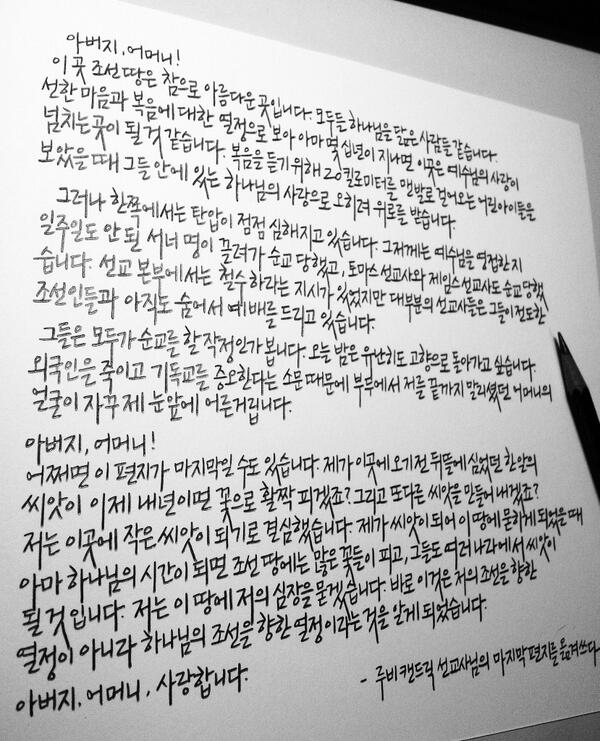 아버지, 어머니!
이 곳 조선 땅은 참으로 아름다운 곳입니다. 모두들 하나님을 닮은 사람들 같습니다.
선한 마음과 복음에 대한 열정으로 보아 아마 몇 십년이 지나면 이곳은 예수님의 사랑이
넘치는 곳이 될 것 같습니다. 복음을 듣기 위해 20킬로미터를 맨발로 걸어오는 어린아이들을
보았을 때 그들 안에 있는 하나님의 사랑으로 오히려 위로를 받습니다.
그러나 한쪽에서는 탄압이 점점 심해지고 있습니다. 그저께는 예수님을 영접한지
일주일도 안 된 서너 명이 끌려가 순교 당했고, 토마스 선교사와 제임스 선교사도 순교 당했
습니다. 선교 본부에서는 철수하라는 지시가 있었지만 대부분의 선교사들은 그들이 전도한
조선인들과 아직도 숨어서 예배를 드리고 있습니다.
그들은 모두가 순교를 할 작정인가 봅니다. 오늘 밤은 유난히도 고향으로 돌아가고 싶습니다.
외국인을 죽이고 기독교를 증오한다는 소문 때문에 부두에서 저를 끝까지 말리셨던 어머니의
얼굴이 자꾸 제 눈앞에 어른거립니다.
아버지, 어머니!
어쩌면 이 편지가 마지막일 수도 있습니다. 제가 이곳에 오기 전 뒤뜰에 심었던 한 알의
씨앗이 이제 내년이면 꽃으로 활짝 피겠죠? 그리고 또 다른 씨앗을 만들어 내겠죠?
저는 이곳에 작은 씨앗이 되기로 결심했습니다. 제가 씨앗이 되어 이 땅에 묻히게 되었을 때
아마 하나님의 시간이 되면 조선 땅에는 많은 꽃들이 피고, 그들도 여러 나라에서 씨앗이
될 것입니다. 저는 이 땅에 저의 심장을 묻겠습니다. 바로 이것은 저의 조선을 향한
열정이 아니라 하나님의 조선을 향한 열정이라는 것을 알게 되었습니다.
아버지, 어머니, 사랑합니다.
- 루비 캔드릭 선교사님의 마지막 편지를 옮겨쓰다